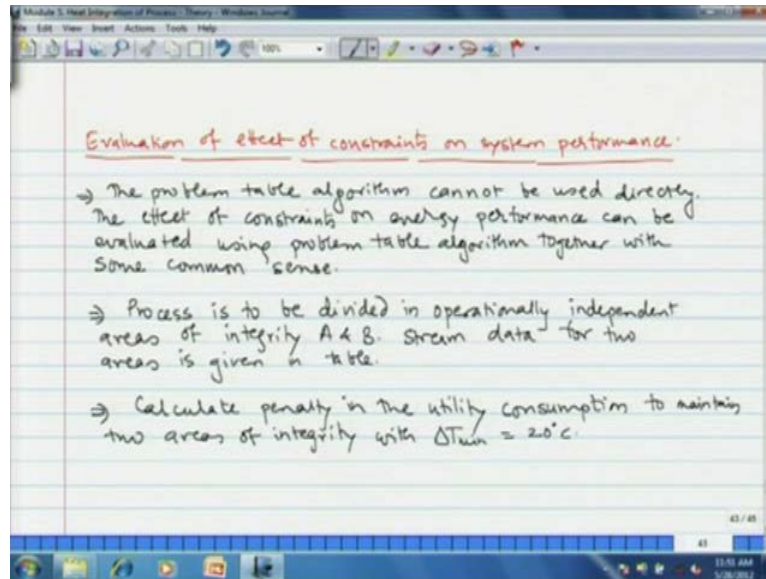 Module 5. Heat Integration of Process - Theory - Windows Journal
File Edit View Insert Actions Tools Help
100%
Evaluation of effect of constraints on system performance.
⇒ The problem table algorithm cannot be used directly.
The effect of constraints on energy performance can be
evaluated using problem table algorithm together with
some common sense.
⇒ Process is to be divided in operationally independent
areas of integrity A & B. Stream data for two
areas is given in table.
⇒ Calculate penalty in the utility consumption to maintain
two areas of integrity with ΔTmin = 20°C.
43 / 45
43
11:51 AM
5/28/2012